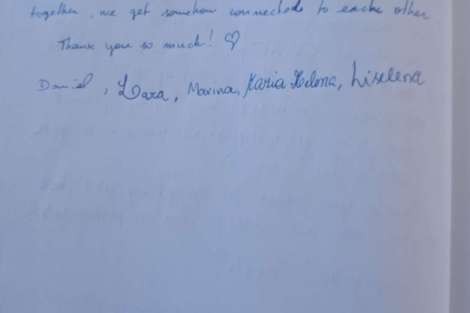 together, we get somehow connected to each other
Thank you so much! ♡
Daniel, Lara, Marina, Maria Helena, Liselena